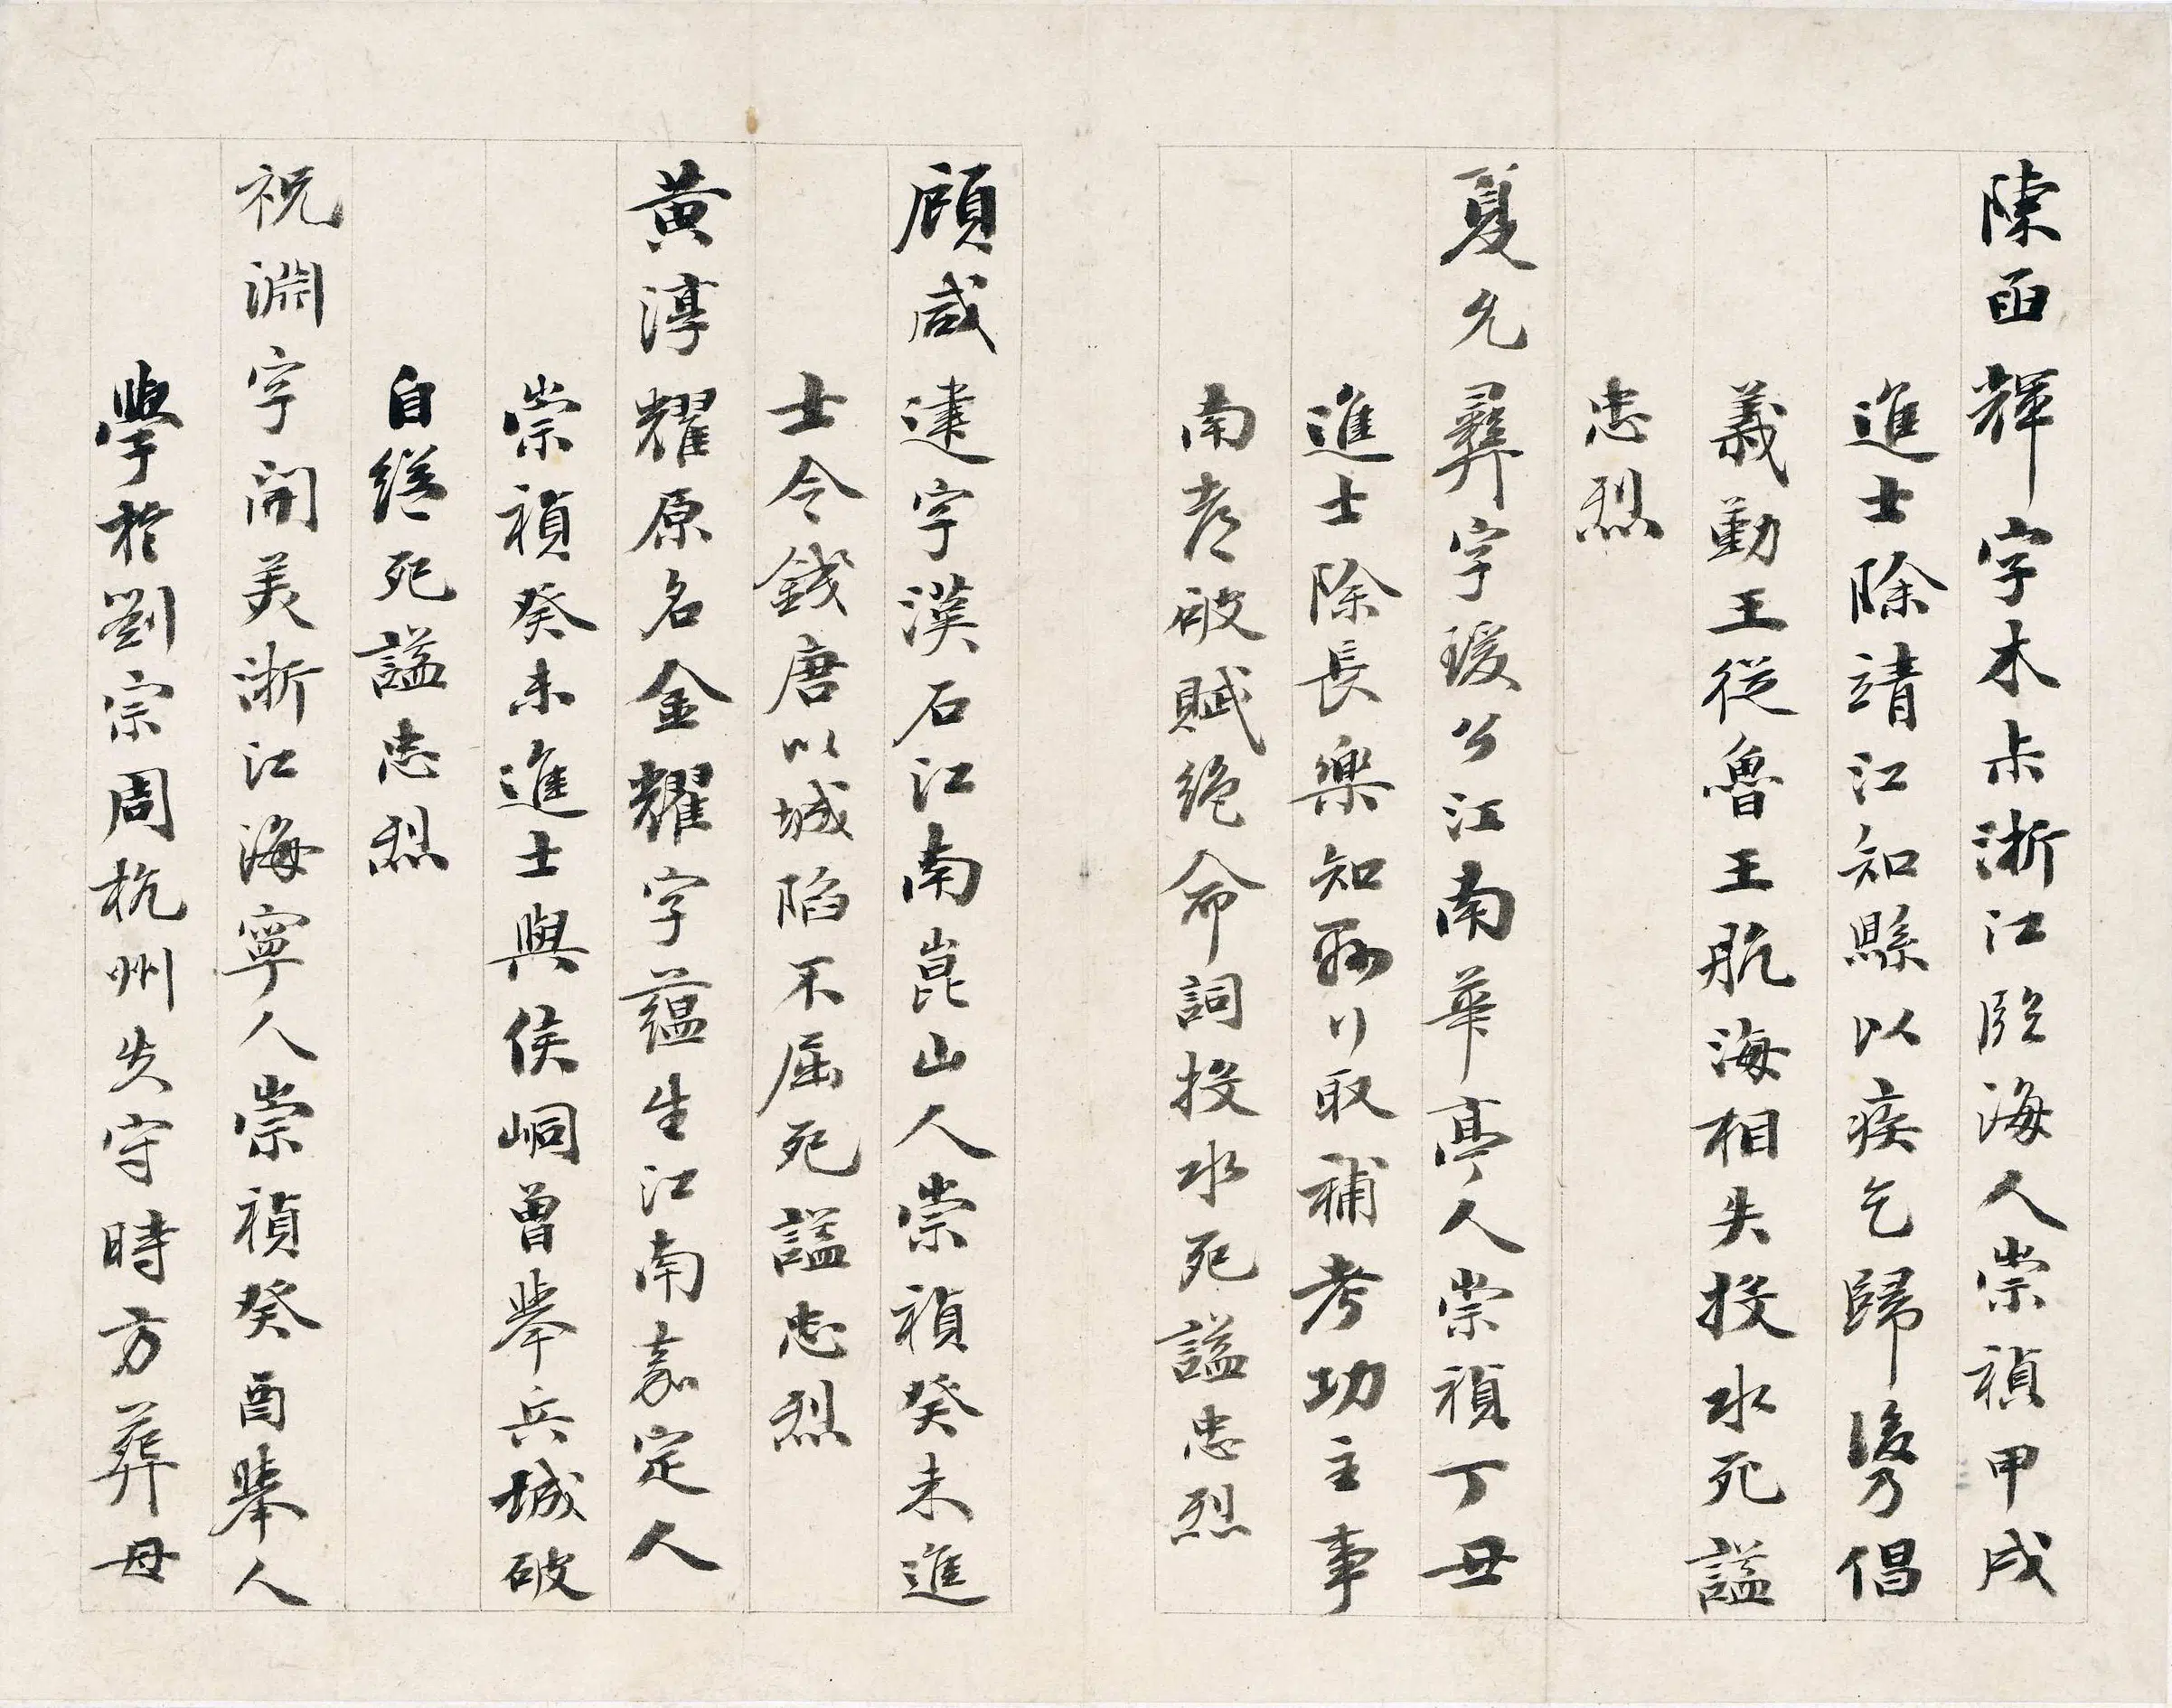 陳函輝字木未浙江臨海人崇禎甲戌
進士除靖江知縣以疾乞歸後乃倡
義勤王從魯王航海相失投水死諡
忠烈
夏允彝字瑗公江南華亭人崇禎丁丑
進士除長樂知縣行取補考功主事
南都破賦絕命詞投水死諡忠烈
顧咸建字漢石江南崑山人崇禎癸未進
士令錢唐以城陷不屈死諡忠烈
黃淳耀原名金耀字蘊生江南嘉定人
崇禎癸未進士與侯峒曾舉兵城破
自縊死諡忠烈
祝淵字開美浙江海寧人崇禎癸酉舉人
學於劉宗周杭州失守時方葬母